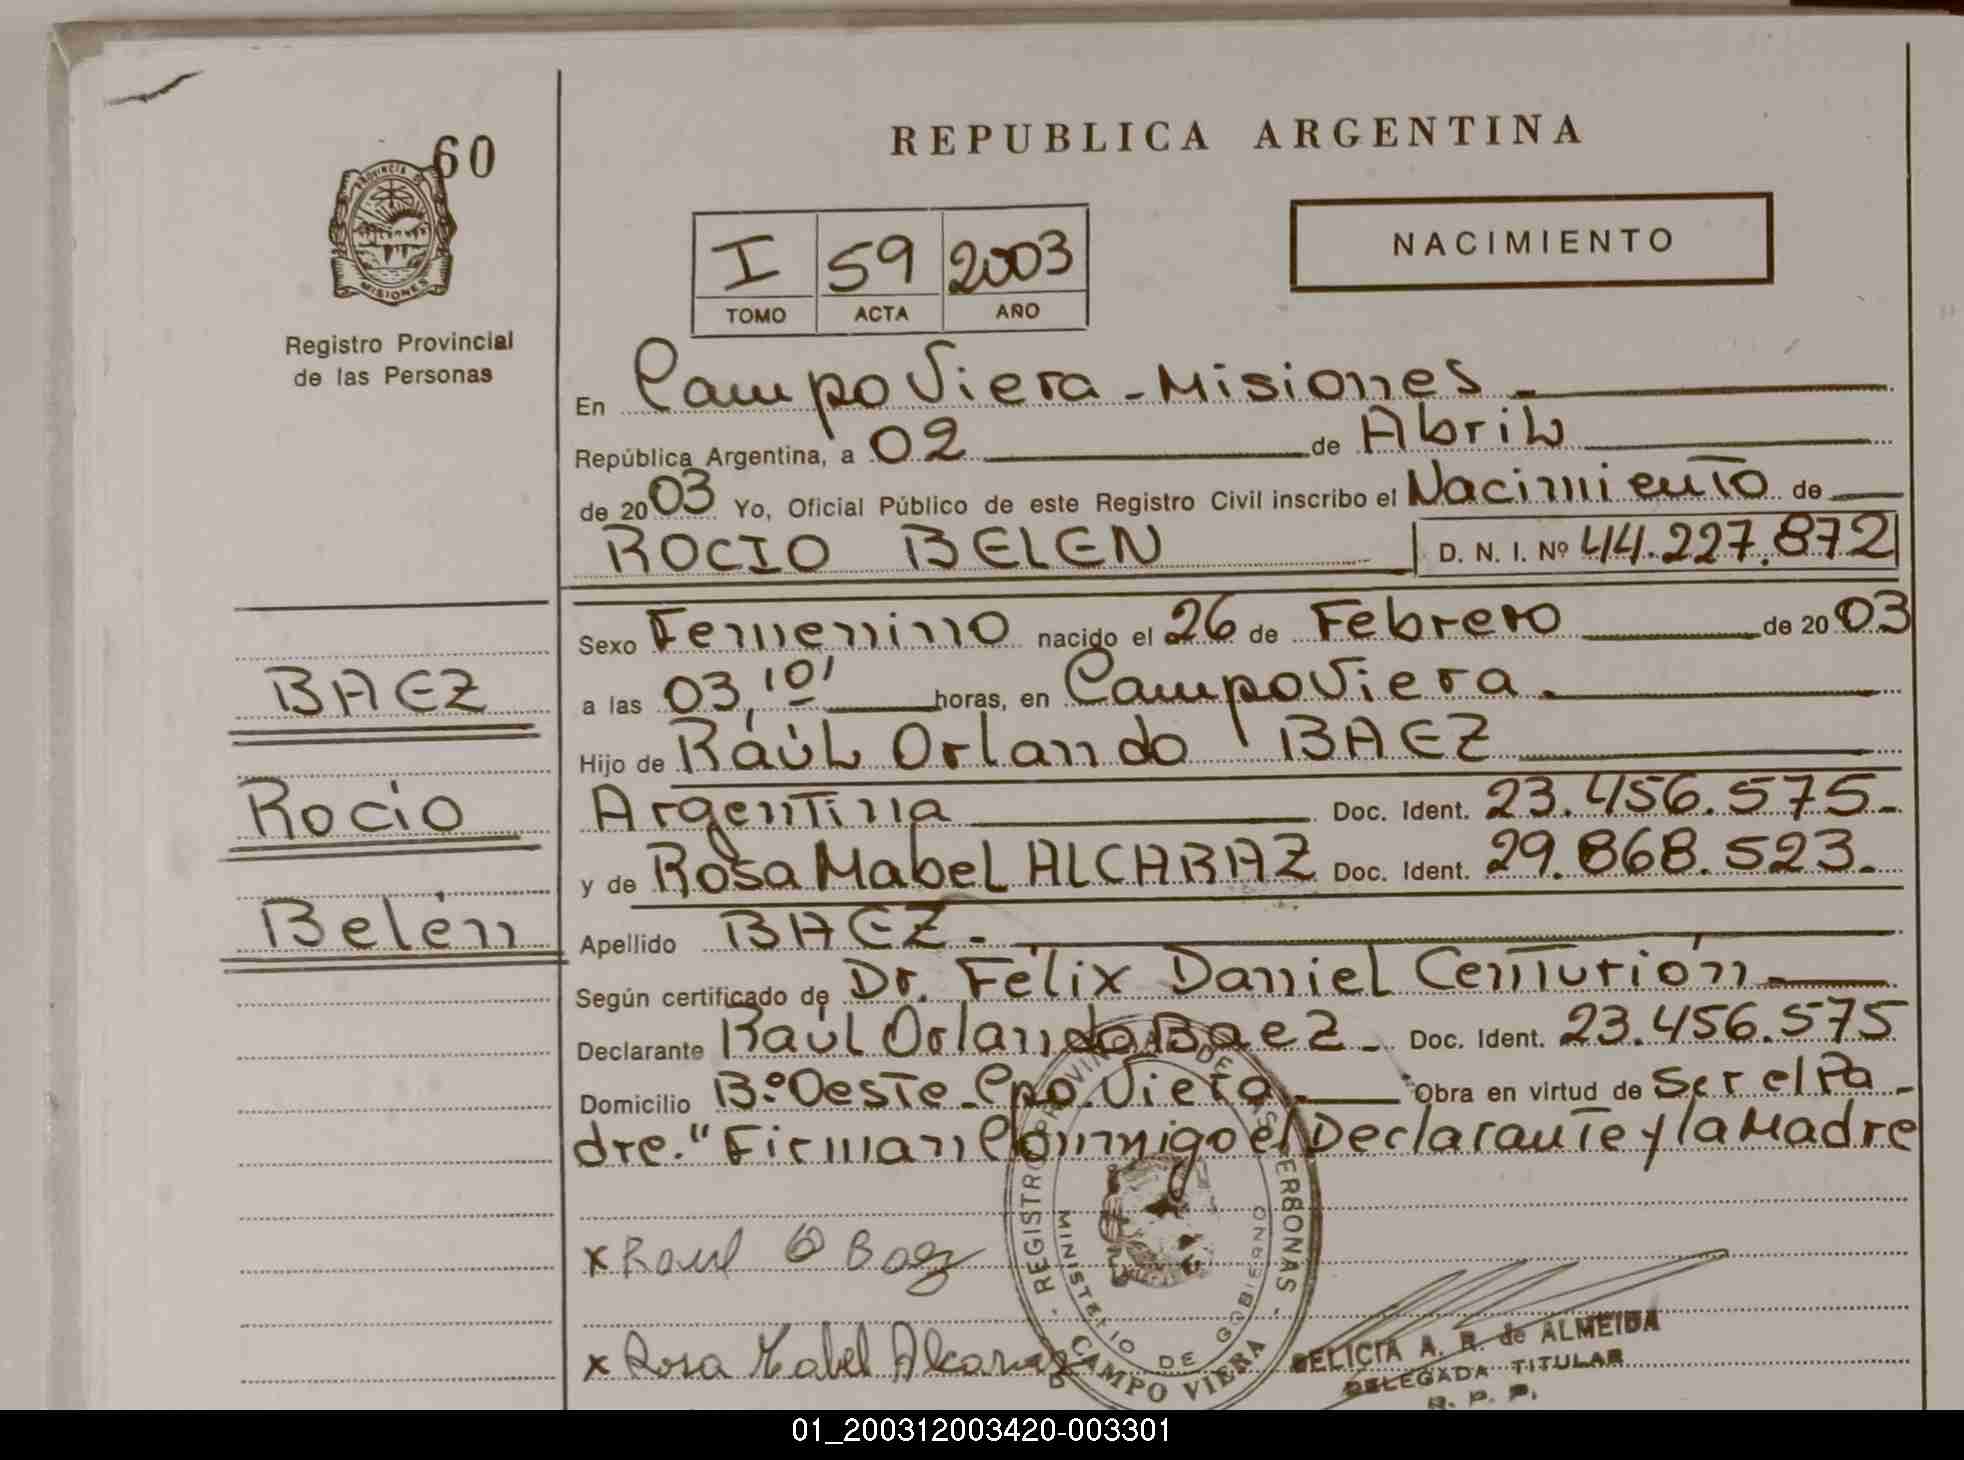 60
PROVINCIA DE
MISIONES
Registro Provincial
de las Personas
REPUBLICA ARGENTINA
I 59 2003
TOMO ACTA AÑO
NACIMIENTO
En Campo Viera - Misiones -
República Argentina, a 02 de Abril
de 2003 Yo, Oficial Público de este Registro Civil inscribo el Nacimiento de
ROCIO BELEN D. N. I. Nº 44.227.872
Sexo Femenino nacido el 26 de Febrero de 2003
a las 03,10' horas, en Campo Viera.
Hijo de Raúl Orlando BAEZ
Argentina Doc. Ident. 23.456.575-
y de Rosa Mabel ALCARAZ Doc. Ident. 29.868.523.
Apellido BAEZ -
Según certificado de Dr. Félix Daniel Centurión -
Declarante Raúl Orlando Baez - Doc. Ident. 23.456.575
Domicilio B:º Oeste - Cpo. Viera. Obra en virtud de Ser el Pa-
dre." Firman Conmigo el Declarante y la Madre
BAEZ
Rocio
Belén
x Raul O Baez
x Rosa Mabel Alcaraz
MINISTERIO DE GOBIERNO
CAMPO VIERA
A. R. de ALMEIDA
DELEGADA TITULAR
R. P. P.
01_200312003420-003301